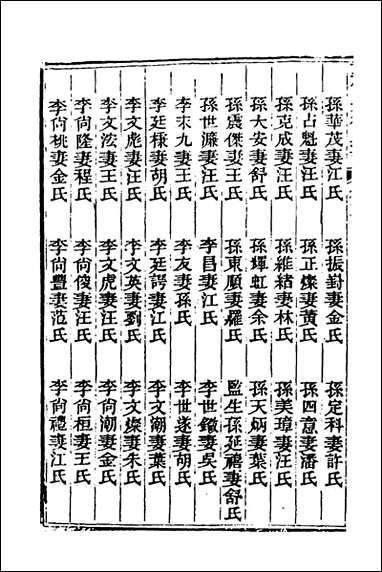 孫華茂妻江氏 孫振對妻金氏 孫定科妻許氏
孫占魁妻汪氏 孫正燦妻黄氏 孫四意妻潘氏
孫克成妻汪氏 孫維緒妻林氏 孫美璋妻汪氏
孫大安妻舒氏 孫輝虹妻余氏 孫天炳妻葉氏
孫震傑妻王氏 孫東順妻羅氏 監生孫延禧妻舒氏
孫世濂妻汪氏 李昌妻江氏 李世鐓妻吳氏
李末九妻王氏 李友妻孫氏 李世遂妻胡氏
李廷㨾妻胡氏 李廷諤妻江氏 李文潮妻葉氏
李文彪妻汪氏 李文英妻劉氏 李文燦妻朱氏
李文浤妻王氏 李文虎妻汪氏 李尙潮妻金氏
李尙隆妻程氏 李尙俊妻汪氏 李尙桓妻王氏
李尙桃妻金氏 李尙豐妻范氏 李尙禮妻江氏